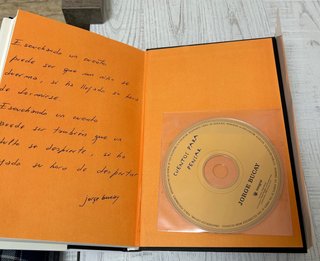 Escuchando un cuento
puede ser que un niño se
duerma, si ha llegado su hora
de dormirse.
Escuchando un cuento
puede ser también que un
adulto se despierte, si ha
llegado su hora de despertar
jorge bucay
CUENTOS PARA
PENSAR
JORGE BUCAY